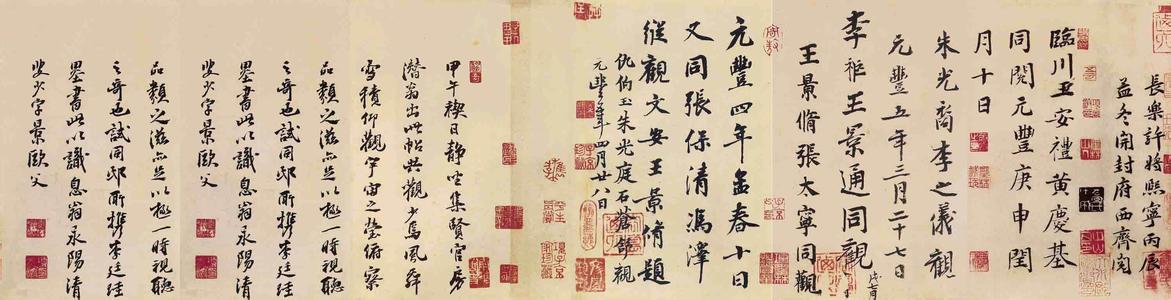 長樂許將熙寧丙辰
孟冬開封府西齊閱
臨川王安禮黃慶基
同閱元豐庚申閏
月十日
朱光裔李之儀觀
元豐五年三月二十七日
李祚王景通同觀
王景脩張太寧同觀
元豐四年孟春十日
又同張保清馮澤
縱觀文安王景脩題
仇伯玉朱光庭石蒼舒觀
元豐年四月廿八日
甲午禊日靜坐集賢官房
潛翁出此帖共觀少焉風舜
雪積仰觀宇宙之瑩俯察
品類之滋亦足以極一時視聽
之奇也試用邸所攜李廷珪
墨書此以識息翁永陽清
叟少字景歐父
品類之滋亦足以極一時視聽
之奇也試用邸所攜李廷珪
墨書此以識息翁永陽清
叟少字景歐父